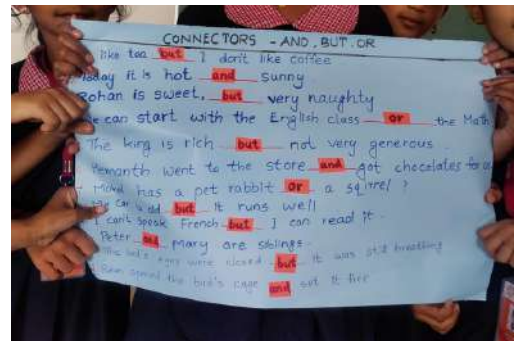 CONNECTORS - AND, BUT, OR
like tea but I don't like coffee
Today it is hot and sunny
Rohan is sweet, but very naughty
We can start with the English class or the Math
The king is rich but not very generous.
Hemanth went to the store and got chocolates for us
has a pet rabbit or a squirrel ?
My car is old but it runs well
I can't speak French but I can read it.
Peter and Mary are siblings.
The bird's eyes were closed but it was still breathing
Ram opened the bird's cage and set it free